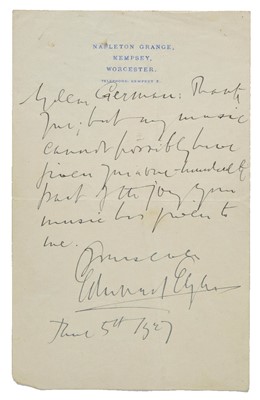 NAPLETON GRANGE,
KEMPSEY,
WORCESTER.
TELEPHONE: KEMPSEY 8.
My dear German: Thank
you; but my music
cannot possibly have
given you a one-hundredth
part of the joy your
music has given to
me.
Yours ever
Edward Elgar
June 5th 1927